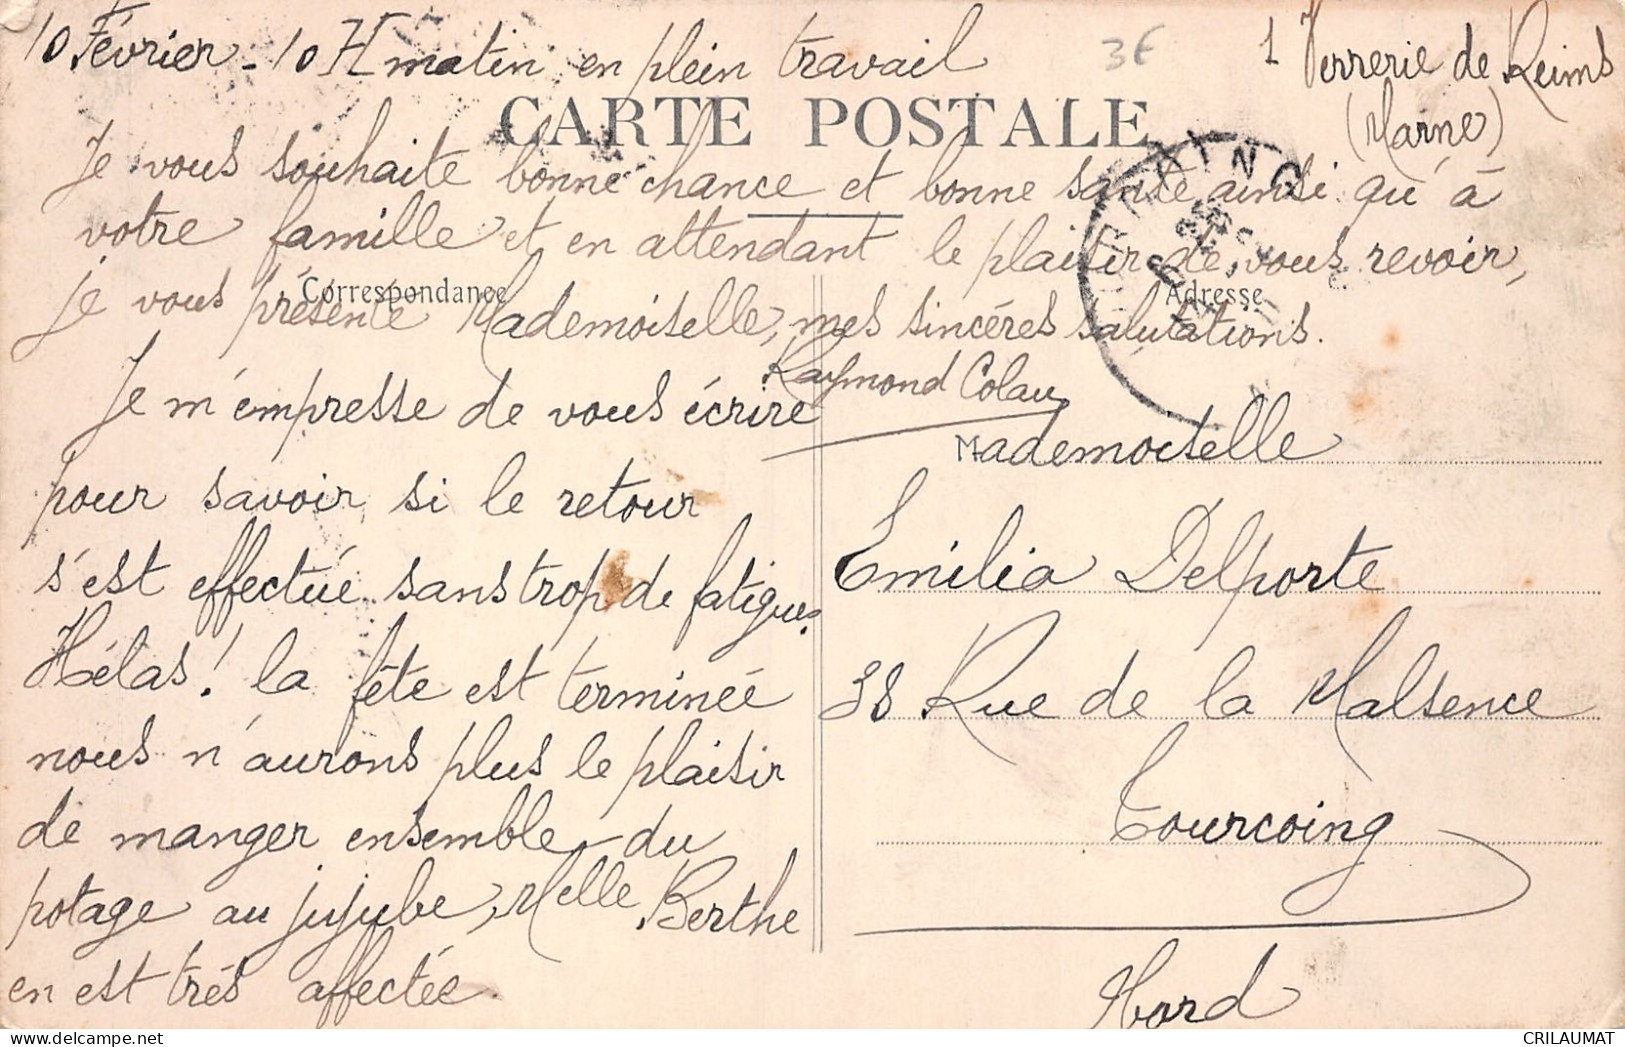 10 Février - 10 H matin en plein travail
3€
1 Verrerie de Reims
(Marne)
CARTE POSTALE
Je vous souhaite bonne chance et bonne santé ainsi qu'à
votre famille et en attendant le plaisir de vous revoir,
je vous présente Mademoiselle, mes sincéres salutations.
Raymond Colau
Correspondance
Je m'empresse de vous écrire
pour savoir si le retour
s'est effectué sans trop de fatigues.
Hélas! la fête est terminée
nous n'aurons plus le plaisir
de manger ensemble du
potage au jujube, Melle Berthe
en est trés affectée.
Adresse
Mademoiselle
Emilia Delporte
38 Rue de la Malsence
Tourcoing
Nord
CRILAUMAT